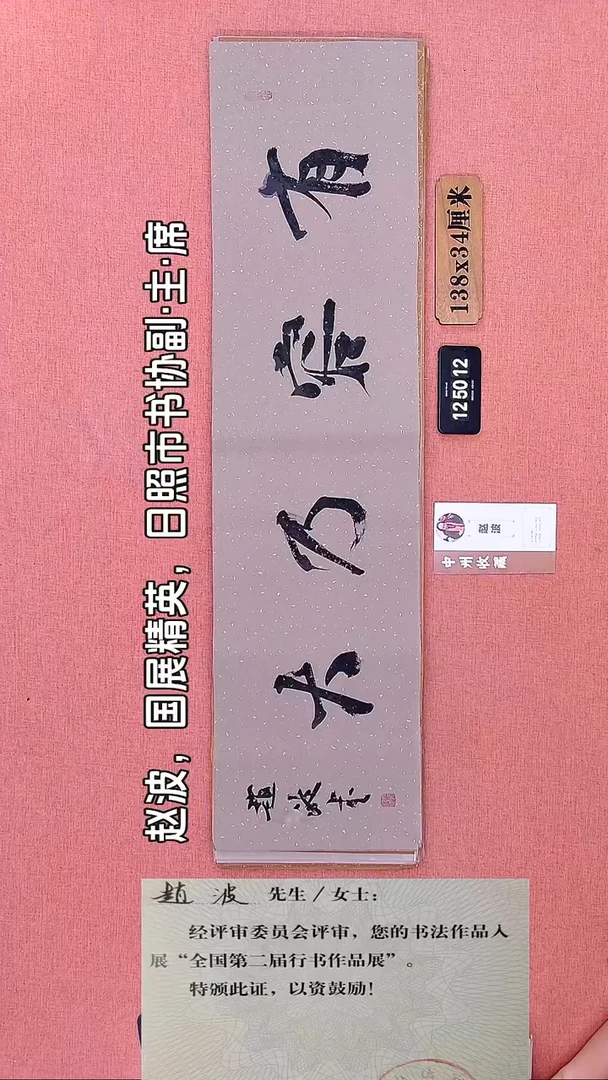 赵波，国展精英，日照市书协副·主·席
有容乃大
趙波书
138x34厘米
12 50 12
赵波
中州收藏
趙波 先生 / 女士：
经评审委员会评审，您的书法作品入
展“全国第二届行书作品展”。
特颁此证，以资鼓励！